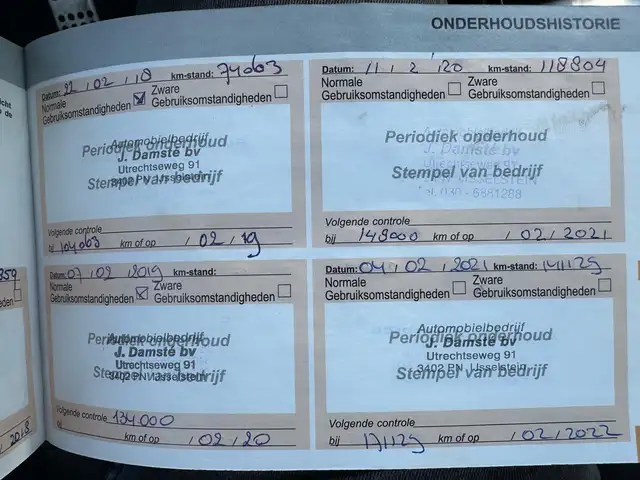 ONDERHOUDSHISTORIE
Datum: 22 / 02 / 18 km-stand: 74063
Normale Gebruiksomstandigheden Zware Gebruiksomstandigheden
Periodiek onderhoud
Stempel van bedrijf
Automobielbedrijf
J. Damsté bv
Utrechtseweg 91
3402 PN IJsselstein
Volgende controle
bij 104063 km of op / 02 / 19
Datum: 11 / 2 / '20 km-stand: 118804
Normale Gebruiksomstandigheden Zware Gebruiksomstandigheden
Periodiek onderhoud
Stempel van bedrijf
J. Damsté bv
Utrechtseweg 91
IJSSELSTEIN
Tel. 030 - 6881288
Volgende controle
bij 148000 km of op / 02 / 2021
Datum: 07 / 02 / 2019 km-stand:
Normale Gebruiksomstandigheden Zware Gebruiksomstandigheden
Periodiek onderhoud
Stempel van bedrijf
Automobielbedrijf
J. Damsté bv
Utrechtseweg 91
3402 PN IJsselstein
Volgende controle 134.000
km of op / 02 / 20
Datum: 04 / 02 / 2021 km-stand: 141129
Normale Gebruiksomstandigheden Zware Gebruiksomstandigheden
Periodiek onderhoud
Stempel van bedrijf
Automobielbedrijf
J. Damsté bv
Utrechtseweg 91
3402 PN IJsselstein
Volgende controle
bij 171129 km of op / 02 / 2022